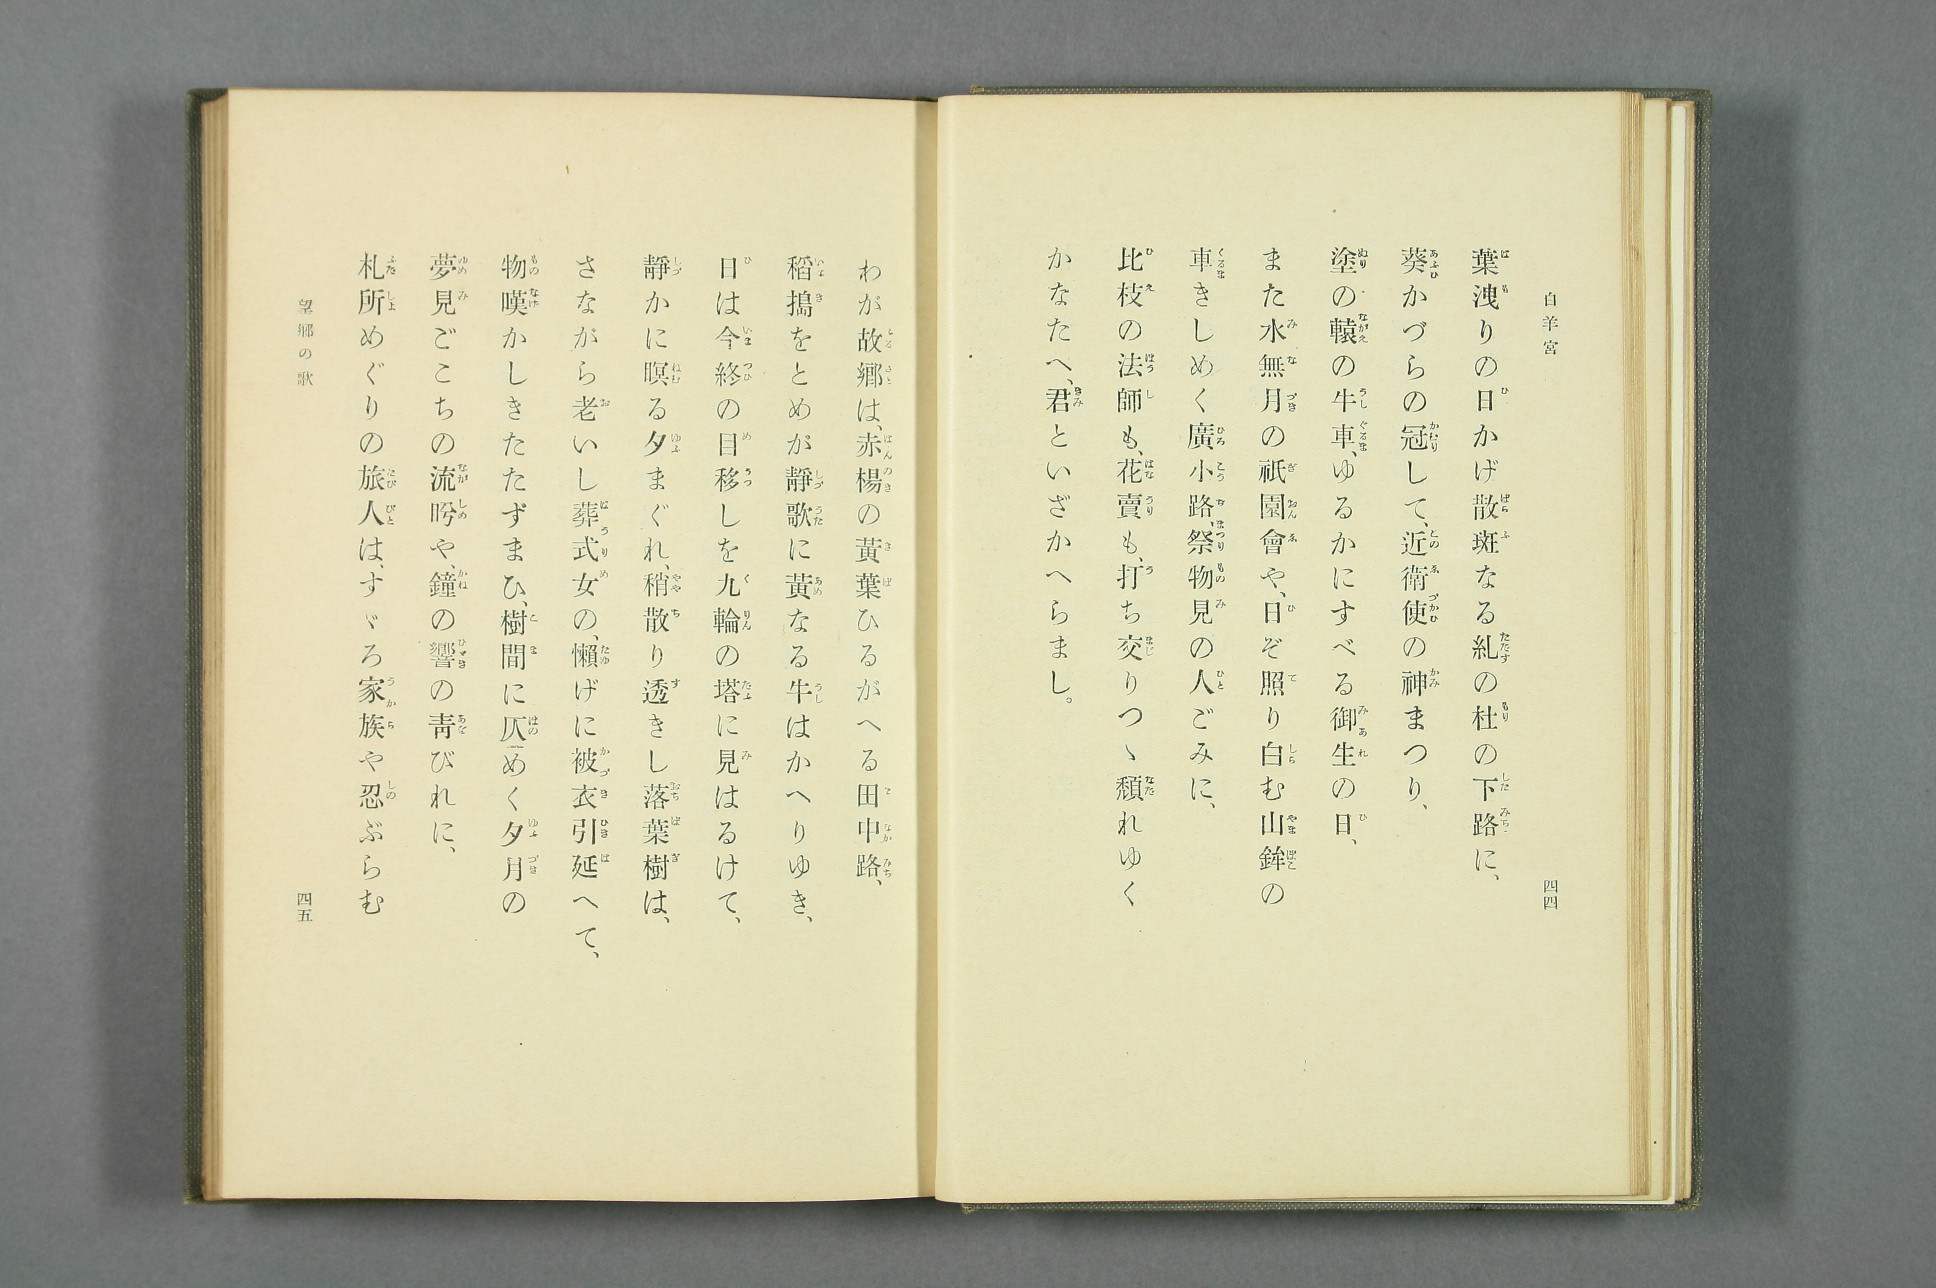 白羊宮
四四
葉洩りの日かげ散斑なる糺の杜の下路に、
葵かづらの冠して、近衛使の神まつり、
塗の轅の牛車、ゆるかにすべる御生の日、
また水無月の祇園會や、日ぞ照り白む山鉾の
車きしめく廣小路、祭物見の人ごみに、
比枝の法師も、花賣も、打ち交りつゝ頽れゆく
かなたへ、君といざかへらまし。
わが故郷は、赤楊の黄葉ひるがへる田中路、
稻搗をとめが靜歌に黄なる牛はかへりゆき、
日は今終の目移しを九輪の塔に見はるけて、
靜かに瞑る夕まぐれ、稍散り透きし落葉樹は、
さながら老いし葬式女の、懶げに被衣引延へて、
物嘆かしきたたずまひ、樹間に仄めく夕月の
夢見ごこちの流眄や、鐘の響の青びれに、
札所めぐりの旅人は、すゞろ家族や忍ぶらむ
望郷の歌
四五